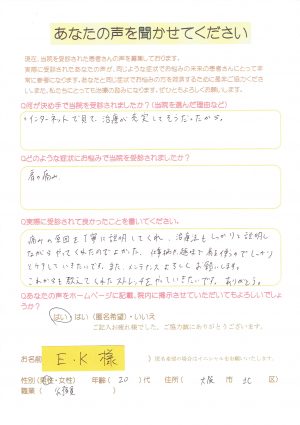 あなたの声を聞かせてください
現在、当院を受診された患者さんの声を募集しております。
実際に受診されたあなたの声が、同じような症状でお悩みの未来の患者さんにとって非
常に重要になります。あなたと同じ症状でお悩みの方を救済するために是非ご協力くださ
い。また、私たちにとっても治療の励みになります。ぜひともよろしくお願いします。
Q何が決め手で当院を受診されましたか？(当院を選んだ理由など)
・インターネットで見て、治療が充実してそうだったから。
Qどのような症状にお悩みで当院を受診されましたか？
肩の痛み
Q実際に受診されて良かったことを書いてください。
痛みの原因を丁寧に説明してくれ、治療法もしっかりと説明し
ながらやってくれたのでよかった。仕事柄
ケアしていきたいです。また、メンテナンスよろしくお願いします。
これからも教えてくれたストレッチをやっていきたいです。ありがとう。
Qあなたの声をホームページに記載、院内に掲示させていただいてもよろしいでしょ
うか？
はい・はい(匿名希望)・いいえ
ご記入お疲れ様でした。ご協力誠にありがとうございます。
お名前 E.K 様 匿名希望の場合はイニシャルをお願いいたします。
性別(男性・女性) 年齢(20)代 住所(大阪 市 北 区)
職業(公務員)